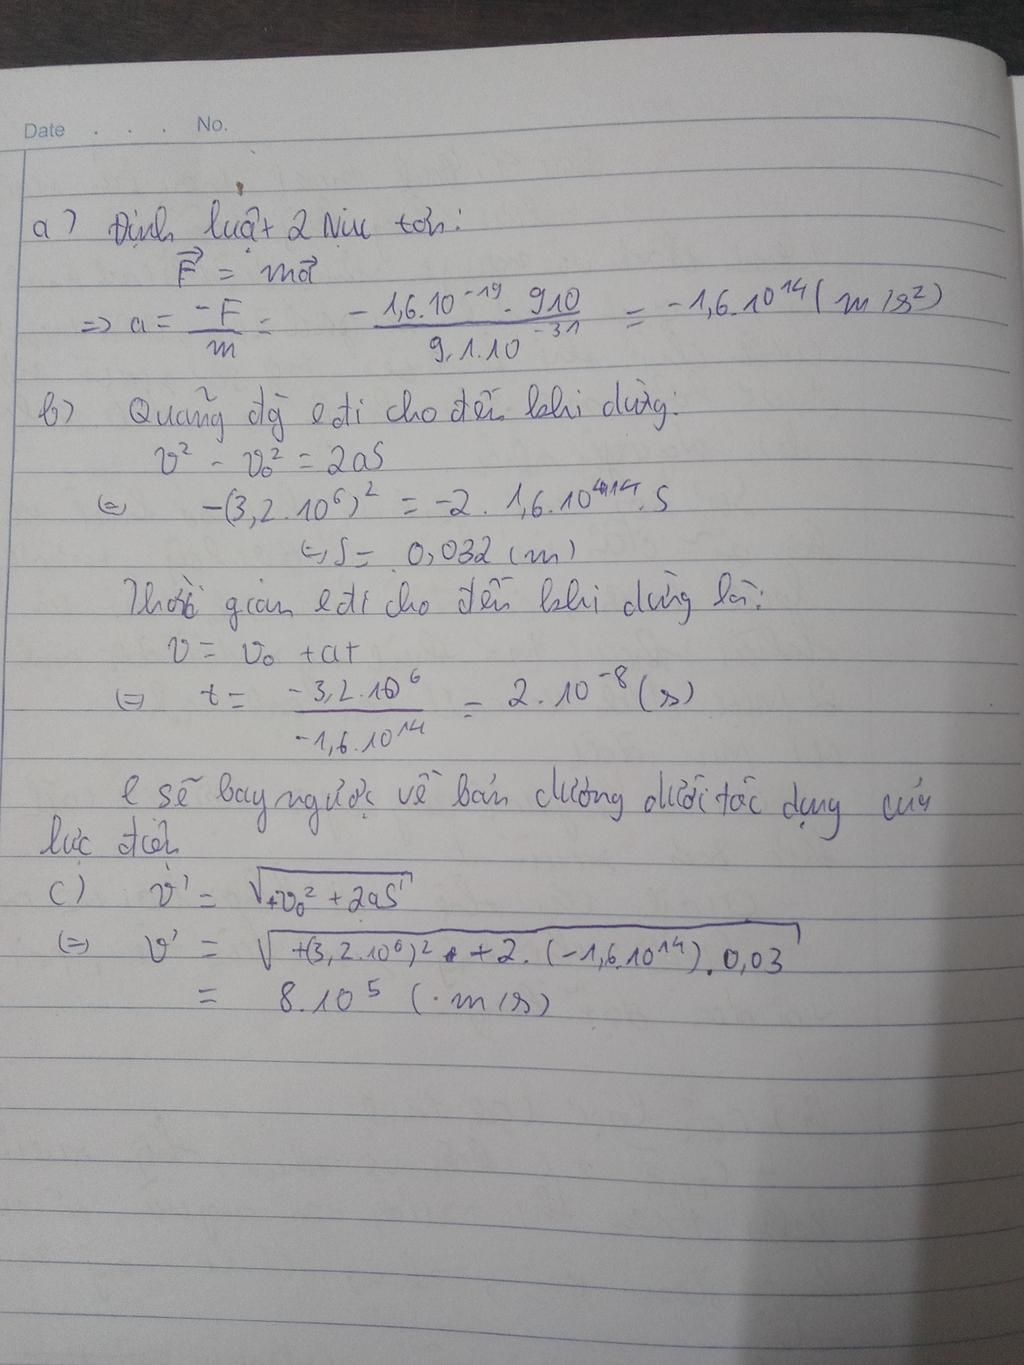 Date . . . No.
a) Định luật 2 Niu tơn:
F⃗ = ma⃗
=> a = -F/m = -1,6.10^-19 . 910 / 9,1.10^-31 = -1,6.10^14 (m/s²)
b) Quãng đg e đi cho đến khi dừng:
v² - v₀² = 2aS
<=> -(3,2.10⁶)² = -2. 1,6.10^14 . S
<=> S = 0,032 (m)
Thời gian e đi cho đến khi dừng là:
v = v₀ + at
<=> t = -3,2.10⁶ / -1,6.10^14 = 2.10^-8 (s)
e sẽ bay ngược về bản dương dưới tác dụng của
lực điện
c) v' = √(+v₀² + 2aS')
<=> v' = √(+(3,2.10⁶)² + 2.(-1,6.10^14).0,03)
= 8.10⁵ (m/s)